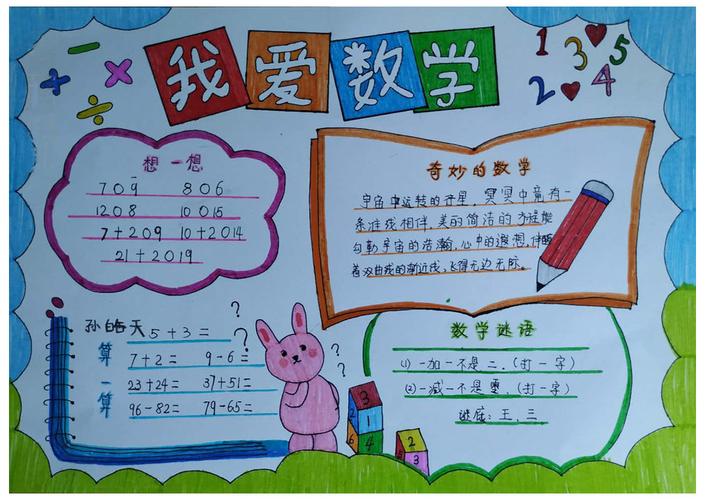 我爱数学
1 3 5
2 4
想一想
709 806
1208 10015
7+209 10+2014
21+2019
奇妙的数学
宇宙中运转的行星，冥冥中竟有一
条准线相伴，美的简洁的方程能
勾勒宇宙的浩瀚，心中的遐想，伴随
着双曲线的渐近线，飞得无边无际。
孙皓天
算一算
5+3=
7+2= 9-6=
23+24= 37+51=
96-82= 79-65=
? ? ? ?
3
2 1
6 4
2
1 3
数学谜语
(1)一加一不是二．(打一字)
(2)一减一不是零．(打一字)
谜底：王、三